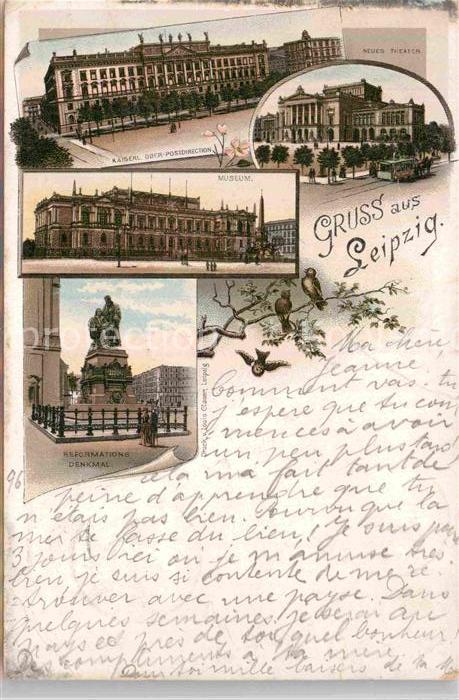 NEUES THEATER.
KAISERL. OBER-POSTDIRECTION.
MUSEUM.
GRUSS aus
Leipzig.
REFORMATIONS
DENKMAL.
Druck v. Louis Glaser, Leipzig
Ma chère
Jeanne,
Comment vas-tu
j'espère que tu com
mences à avoir
un peu plus tard
96
cela m'a fait tant de
peine d'apprendre que tu
n'étais pas bien. Pourvu que ta
se passe du bien! Je suis
3 jours ici où je m'amuse très
bien je suis si contente de me re
trouver avec une payse. Dans
quelques semaines je serai au
pays et près de toi quel bonheur!
compliments à ta mère
mille baisers de ta